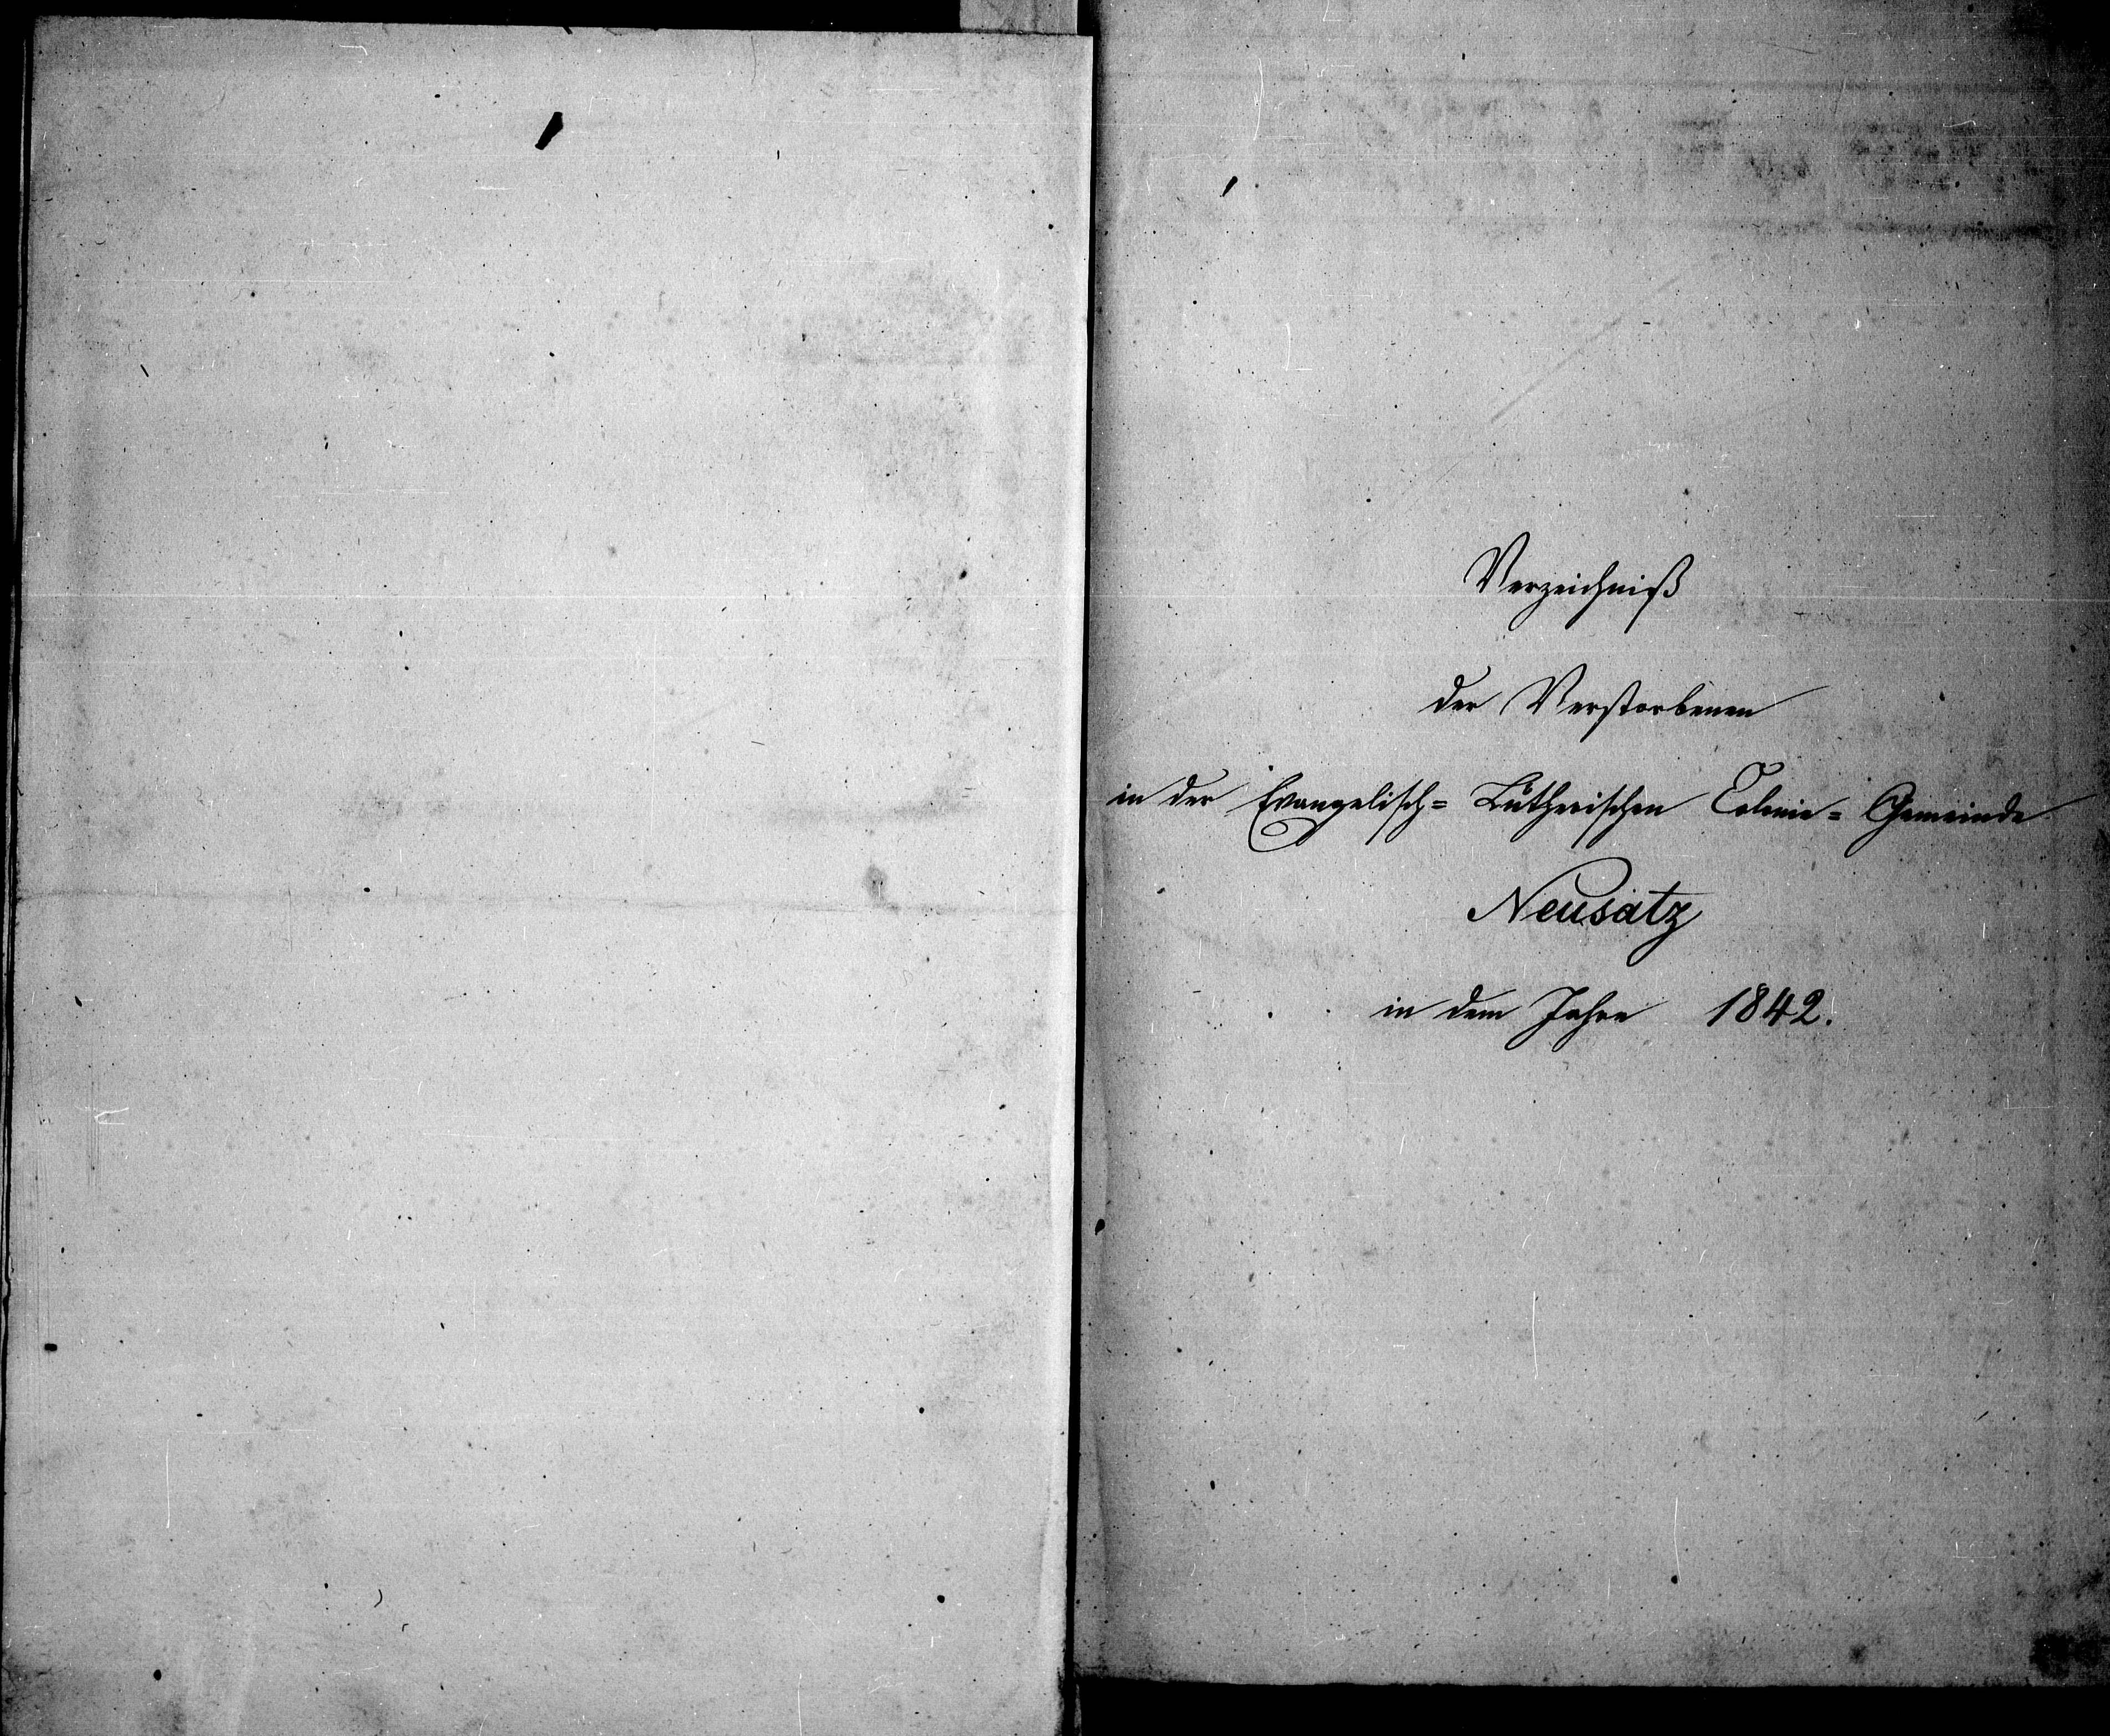 Verzeichniß
der Verstorbenen
in der Evangelisch= Lutherischen Colonie= Gemeinde
Neusatz
in dem Jahre 1842.